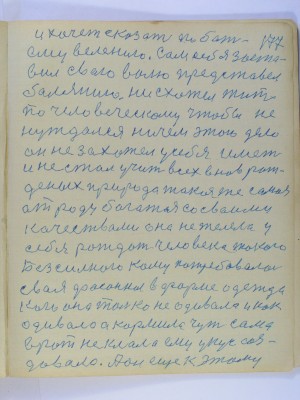 и хочет сказат по бат- 177
ему велению. Сам себя заста-
вил свою волю представел
болванию. ни схотел жит
по человеческому чтобы не
нуждался ничем этою дело
он не захотел у себя имет
и не стал учит всех вноврож-
деных природа такая же самая
от роду богатая со своими
качествами она не желяла у
себя рождат человека такого
безсилного кому потребовалас
своя фасонная в форме одежда
кого она толко не одивала и как
одивала а кормила чут сама
в рот не клала ему укус соз-
довало. А он еще к этому